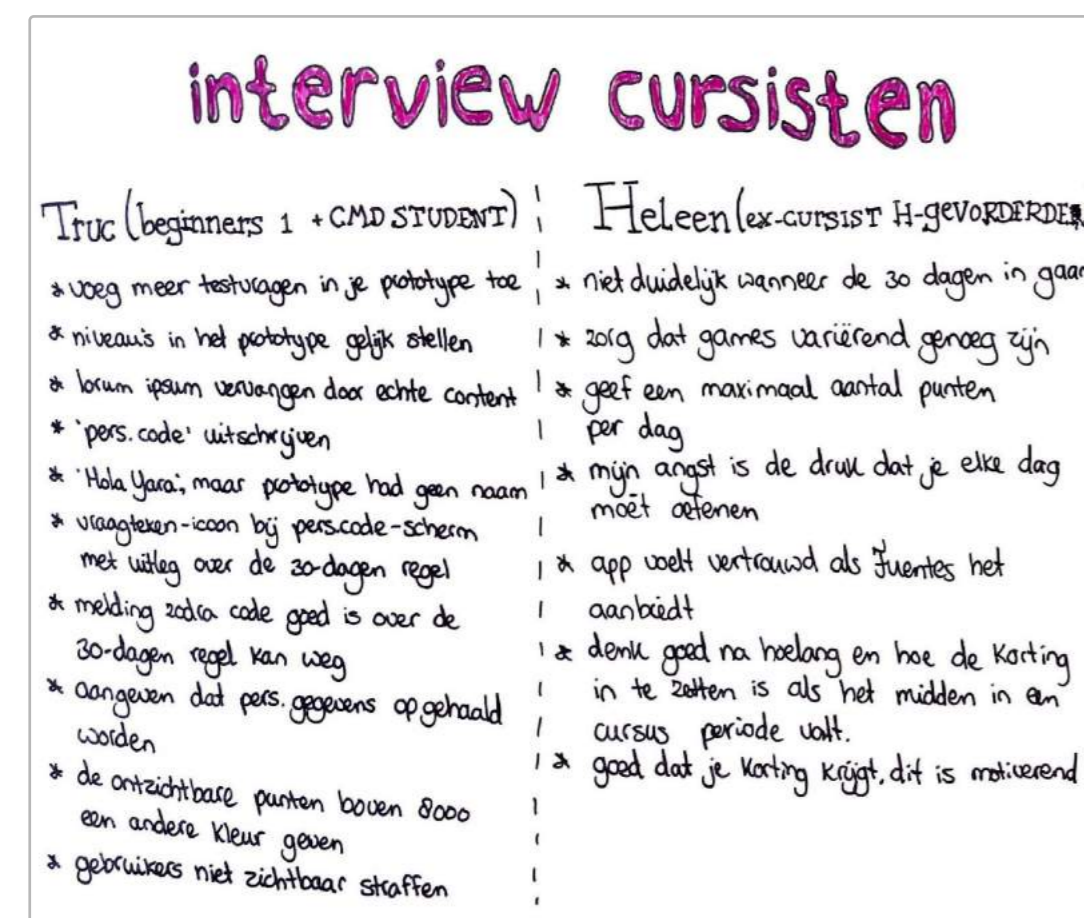 interview cursisten
Truc (beginners 1 + CMD STUDENT)
* voeg meer testvragen in je prototype toe
* niveau's in het prototype gelijk stellen
* lorum ipsum vervangen door echte content
* 'pers. code' uitschrijven
* 'Hola Yara', maar prototype had geen naam
* vraagteken-icoon bij pers.code-scherm
met uitleg over de 30-dagen regel
* melding zodra code goed is over de
30-dagen regel kan weg
* aangeven dat pers. gegevens opgehaald
worden
* de ontzichtbare punten boven 8000
een andere kleur geven
* gebruikers niet zichtbaar straffen
Heleen (ex-cursist H-gevorderde
* niet duidelijk wanneer de 30 dagen in gaan
* zorg dat games variërend genoeg zijn
* geef een maximaal aantal punten
per dag
* mijn angst is de druk dat je elke dag
moét oefenen
* app voelt vertrouwd als Fuentes het
aanbiedt
* denk goed na hoelang en hoe de Korting
in te zetten is als het midden in een
cursus periode valt.
* goed dat je Korting krijgt, dit is motiverend